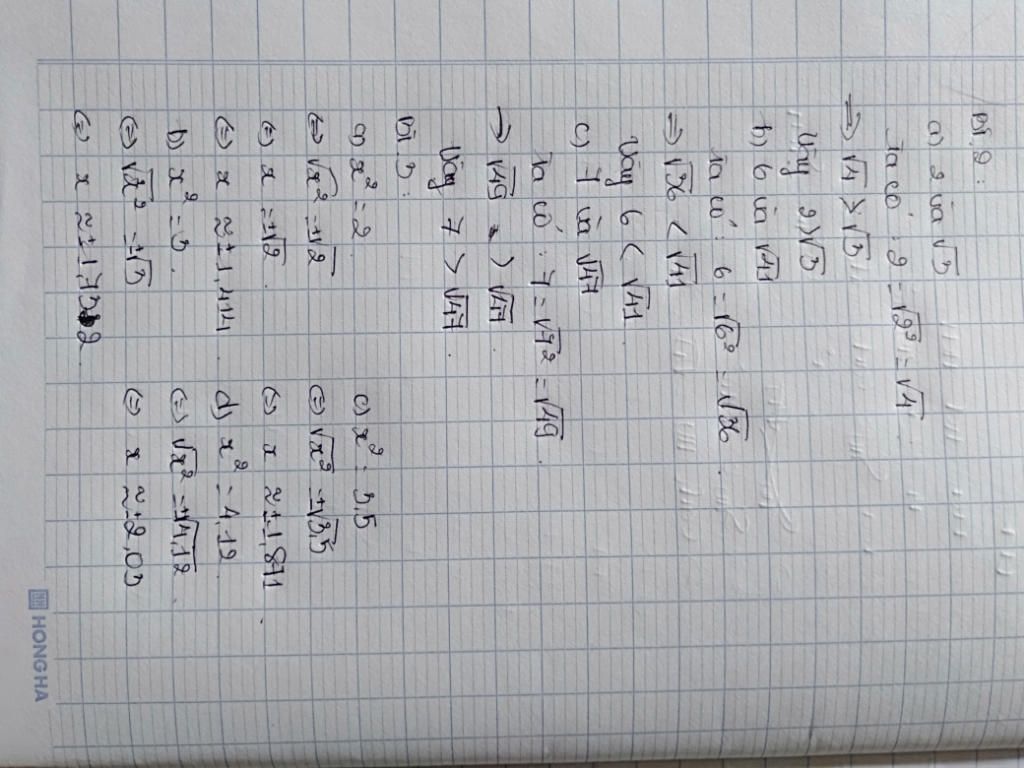 Bài 2:
a) 2 và √3
Ta có: 2 = √2² = √4
⇒ √4 > √3
Vậy 2 > √3
b) 6 và √41
Ta có: 6 = √6² = √36.
⇒ √36 < √41
Vậy 6 < √41
c) 7 và √47
Ta có: 7 = √7² = √49.
⇒ √49 > √47
Vậy 7 > √47.
Bài 3:
a) x² = 2.
⇔ √x² = ±√2
⇔ x = ±√2.
⇔ x ≈ ±1,414.
b) x² = 3.
⇔ √x² = ±√3
⇔ x ≈ ±1,732.
c) x² = 3,5
⇔ √x² = ±√3,5
⇔ x ≈ ±1,871.
d) x² = 4,12
⇔ √x² = ±√4,12.
⇔ x ≈ ±2,03
HONG HA